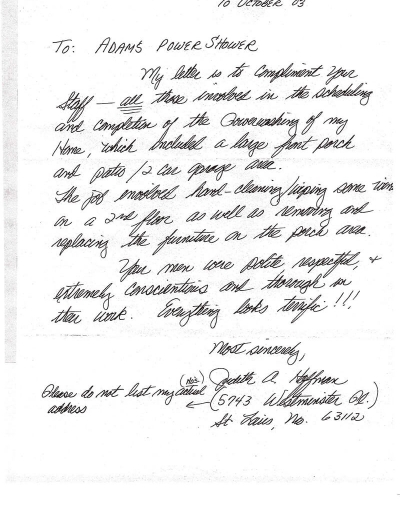 10 OCTOBER 03
TO: ADAMS POWER SHOWER
My letter is to compliment your
Staff — all those involved in the scheduling
and completion of the Powerwashing of my
Home, which included a large front porch
and patio / 2 car garage area.
The job involved hand-cleaning/wiping some
on a 2nd floor as well as removing and
replacing the furniture on the porch area.
Your men were polite respectful, +
extremely conscientious and thorough in
their work. Everything looks terrific!!!
Most sincerely,
Judith A. Hoffman
Please do not list my (No.) actual ← (5943 Westminster Pl.)
address
St. Louis, Mo. 63112